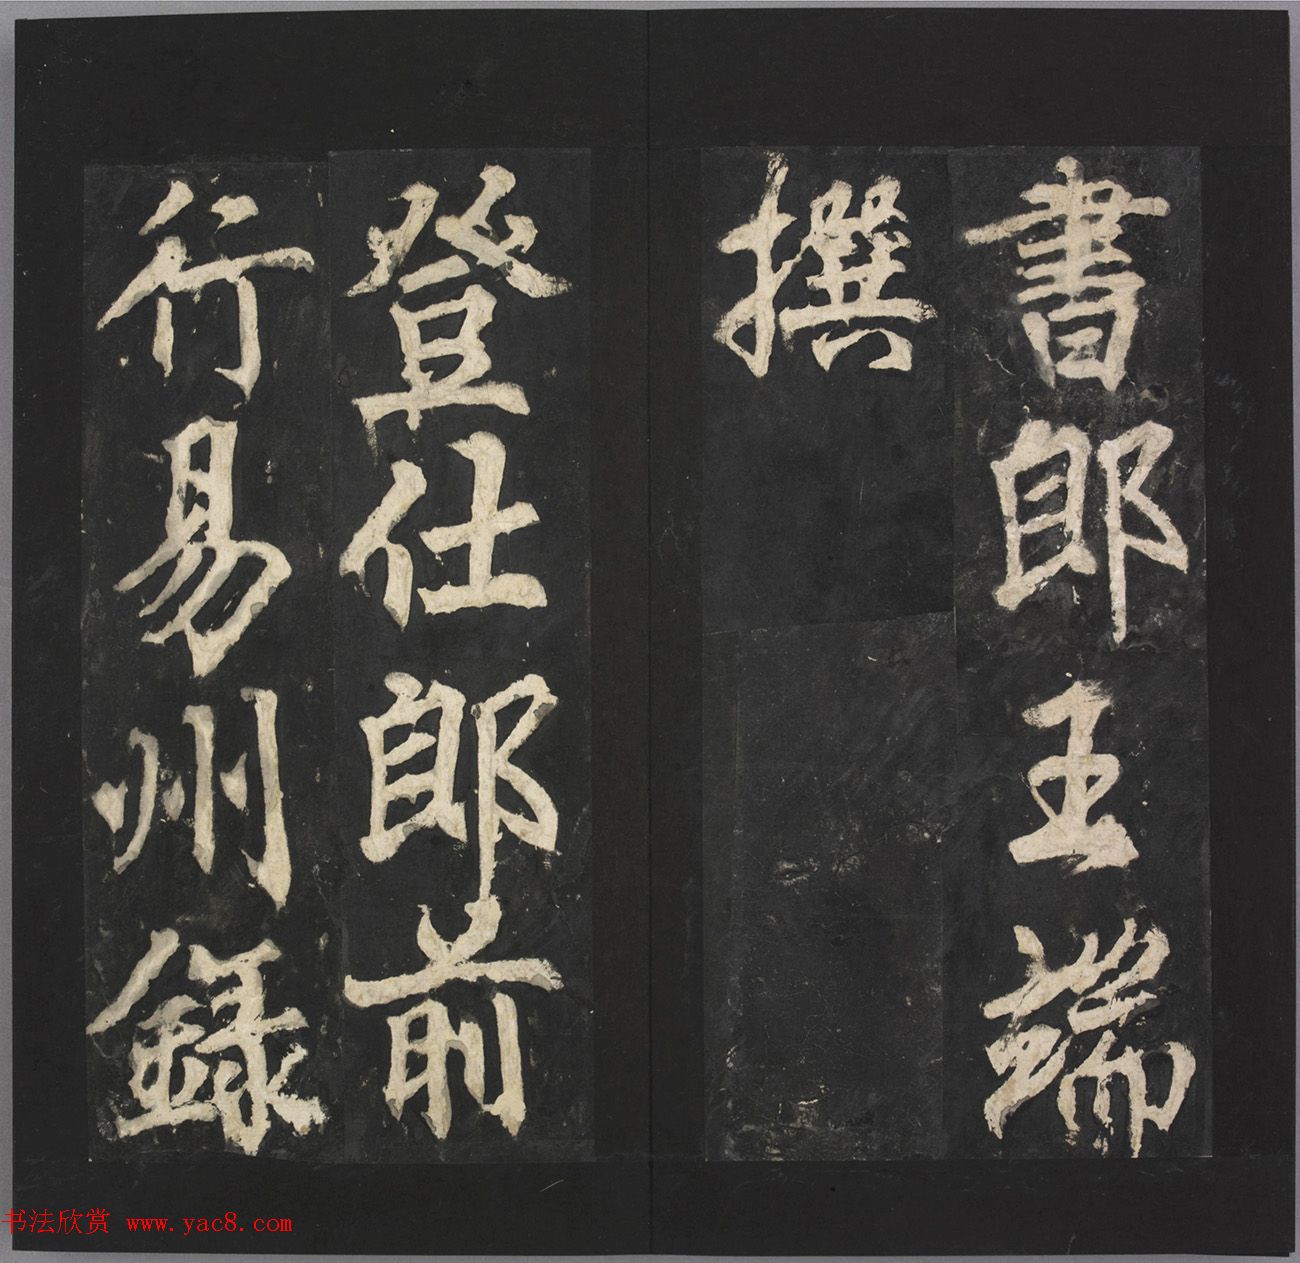 書郎王端
撰
登仕郎前
行易州録
书法欣赏 www.yac8.com